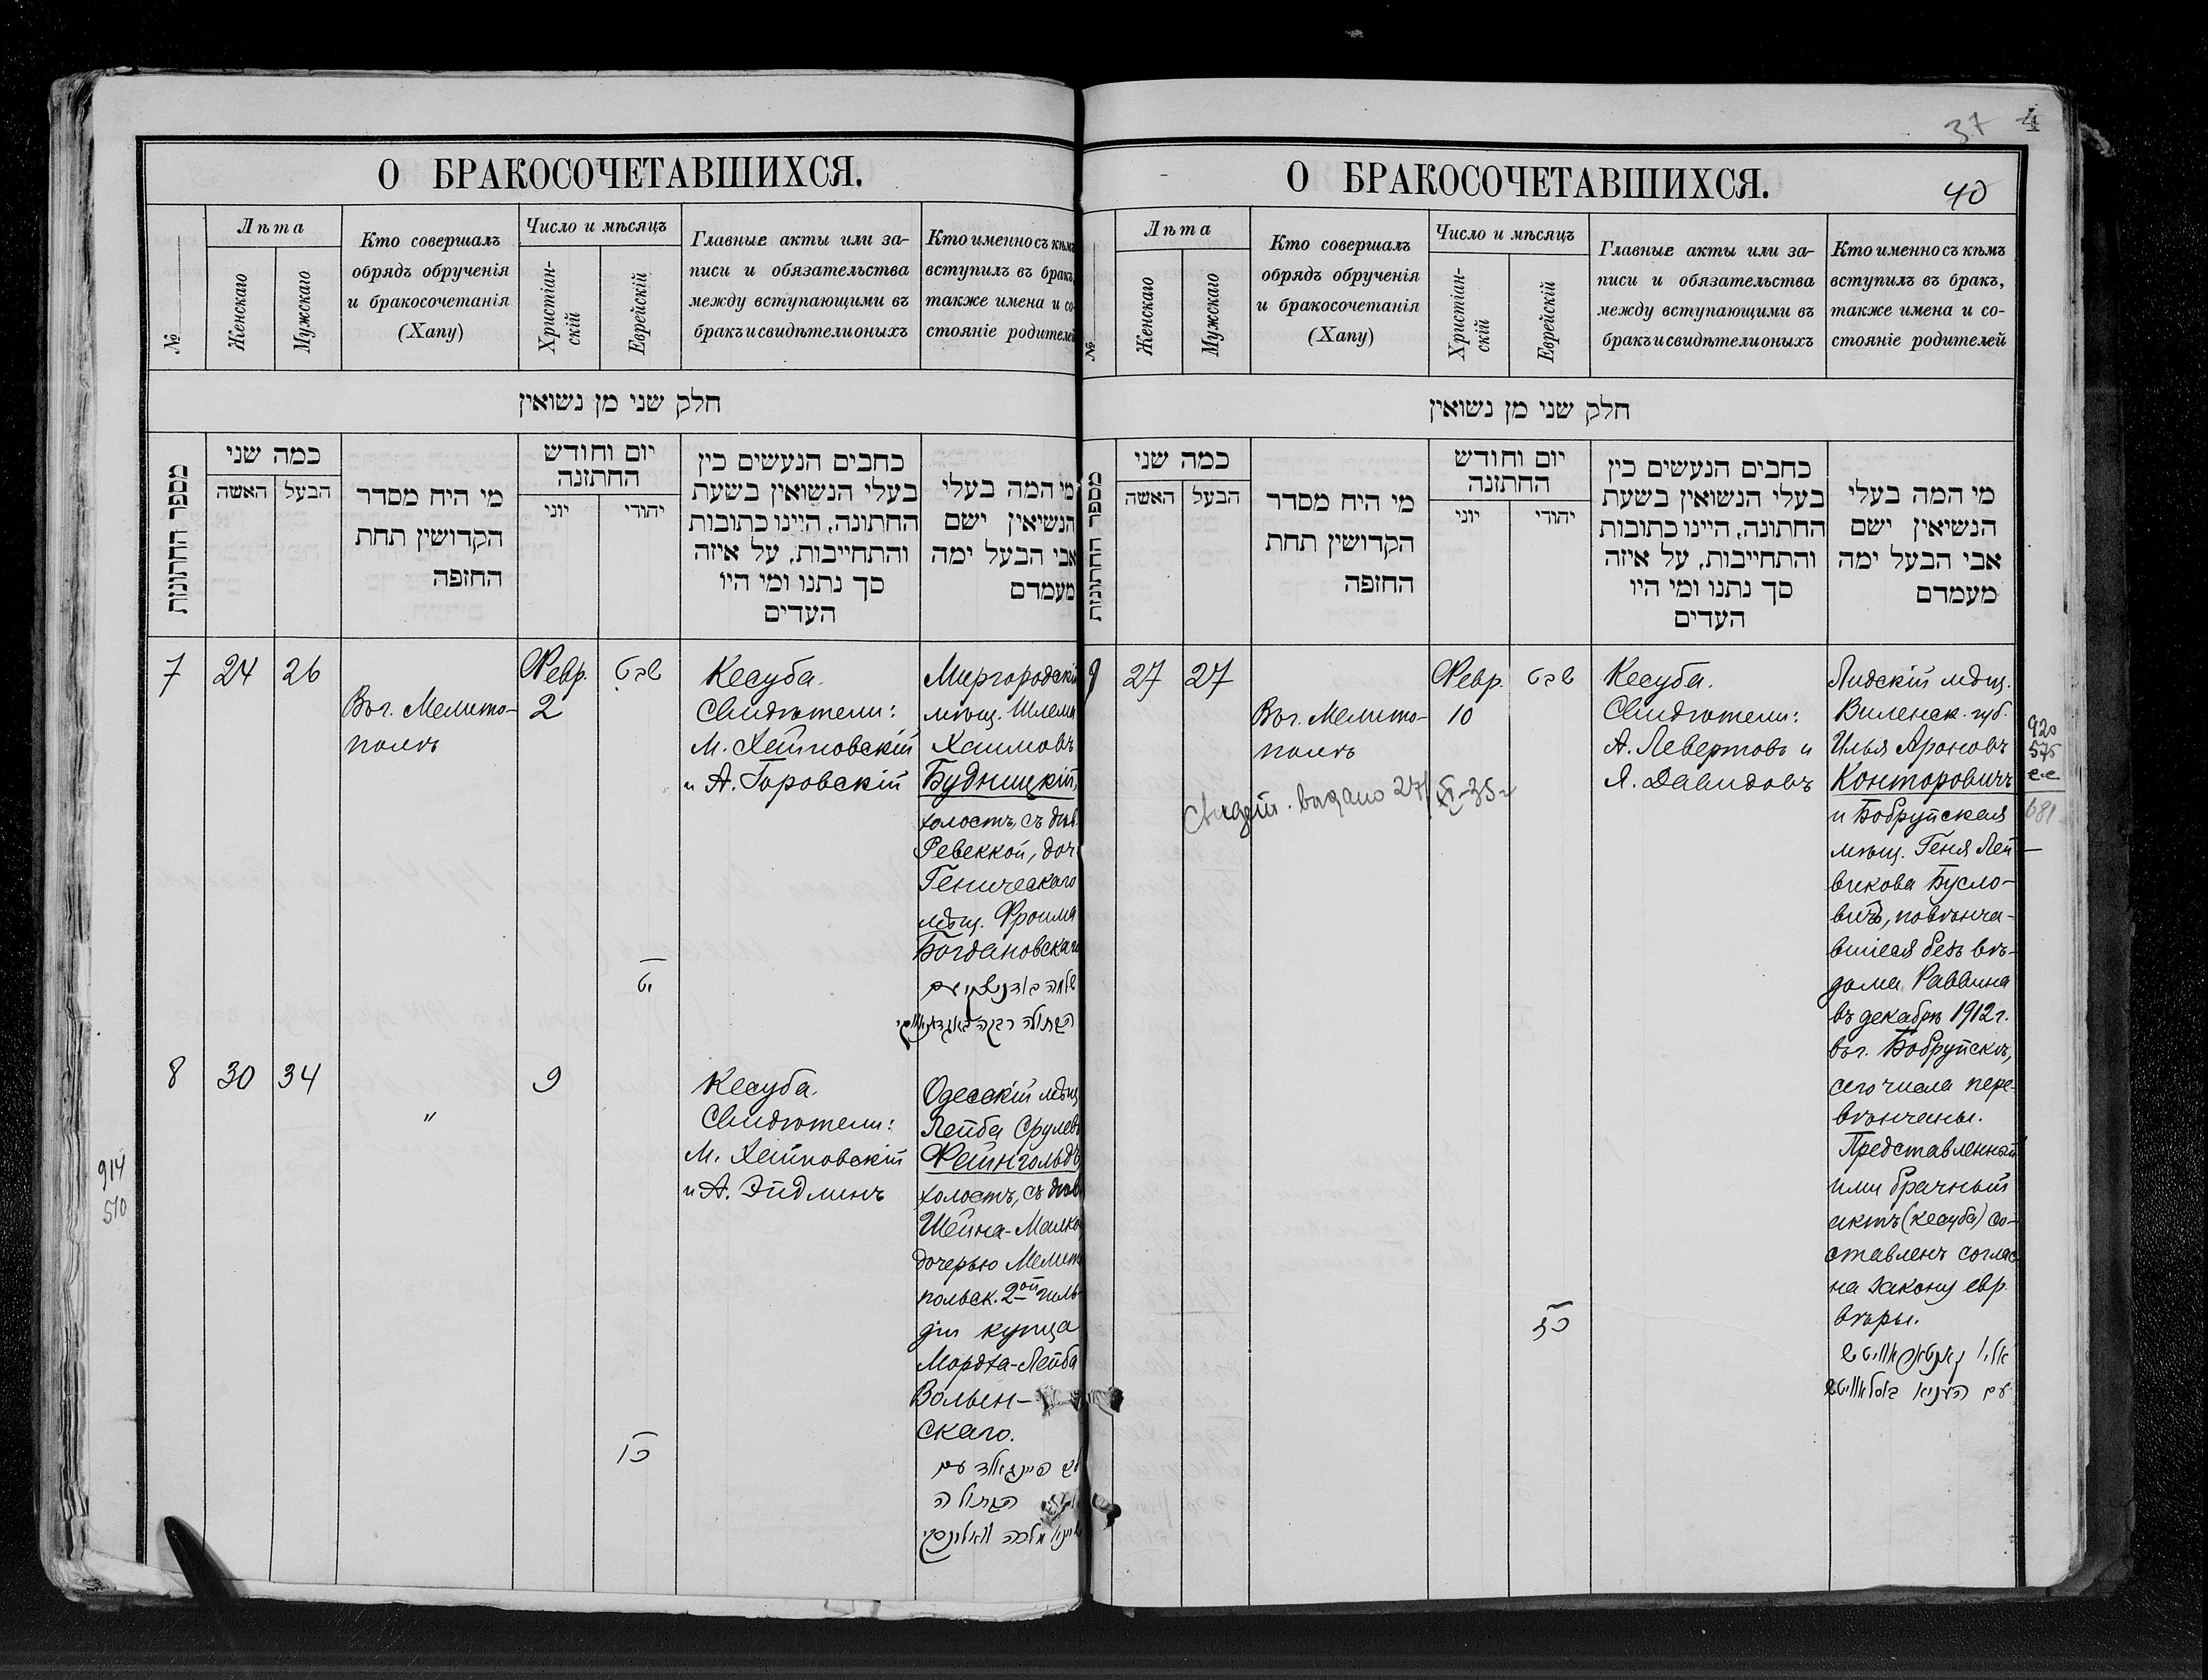 О БРАКОСОЧЕТАВШИХСЯ.
№
Лѣта
Женскаго
Мужскаго
Кто совершалъ
обрядъ обрученія
и бракосочетанія
(Хапу)
Число и мѣсяцъ
Христіан-
скій
Еврейскій
Главные акты или за-
писи и обязательства
между вступающими въ
бракъ и свидѣтели оныхъ
Кто именно съ кѣмъ
вступилъ въ бракъ,
также имена и со-
стояніе родителей
חלק שני מן נשואין
מספר החתונות
כמה שני
האשה
הבעל
מי היה מסדר
הקדושין תחת
החופה
יום וחודש
החתונה
יוני
יהודי
כתבים הנעשים בין
בעלי הנשואין בשעת
החתונה, היינו כתובות
והתחייבות, על איזה
סך נתנו ומי היו
העדים
מי המה בעלי
הנשיאין ישם
אבי הבעל ימה
מעמדם
7
24
26
Въ г. Мелито-
полѣ
Февр.
2
שבט
יט
Кесуба.
Свидѣтели:
М. Хейповскій
и А. Горовскій
Миргородскій
мѣщ. Шлема
Хаимовъ
Будницкій,
холостъ, съ дѣв.
Ревеккой, доч.
Геническаго
мѣщ. Фроима
Богдановскаго
8
30
34
"
9
כו
Кесуба.
Свидѣтели:
М. Хейповскій
и А. Эйдлинъ
Одесскій мѣщ.
Лейба Срулевъ
Фейнгольдъ
холостъ, съ дѣв.
Шейна-Малкой
дочерью Мелито
польск. 2ой гиль-
діи купца
Мордха-Лейба
Волын-
скаго.
914
510
37
4
40
О БРАКОСОЧЕТАВШИХСЯ.
№
Лѣта
Женскаго
Мужскаго
Кто совершалъ
обрядъ обрученія
и бракосочетанія
(Хапу)
Число и мѣсяцъ
Христіан-
скій
Еврейскій
Главные акты или за-
писи и обязательства
между вступающими въ
бракъ и свидѣтели оныхъ
Кто именно съ кѣмъ
вступилъ въ бракъ,
также имена и со-
стояніе родителей
חלק שני מן נשואין
מספר החתונות
כמה שני
האשה
הבעל
מי היה מסדר
הקדושין תחת
החופה
יום וחודש
החתונה
יוני
יהודי
כתבים הנעשים בין
בעלי הנשואין בשעת
החתונה, היינו כתובות
והתחייבות, על איזה
סך נתנו ומי היו
העדים
מי המה בעלי
הנשיאין ישם
אבי הבעל ימה
מעמדם
9
27
27
Въ г. Мелито-
полѣ
Свидѣт. выдано 27/XI-35
Февр.
10
שבט
כז
Кесуба.
Свидѣтели:
А. Левертовъ и
Я. Давидовъ
Лидскій мѣщ.
Виленск. губ.
Илья Ароновъ
Конторовичъ
и Бобруйская
мѣщ. Геня Лей-
викова Бусло-
вичъ, повѣнча-
вшіеся безъ вѣ-
дома Раввина
въ декабрѣ 1912 г.
въ г. Бобруйскѣ,
сего числа пере-
вѣнчаны.
Представленный
ими брачный
актъ (кесуба) со-
ставленъ соглас
на закону евр.
вѣры.
920
575
681